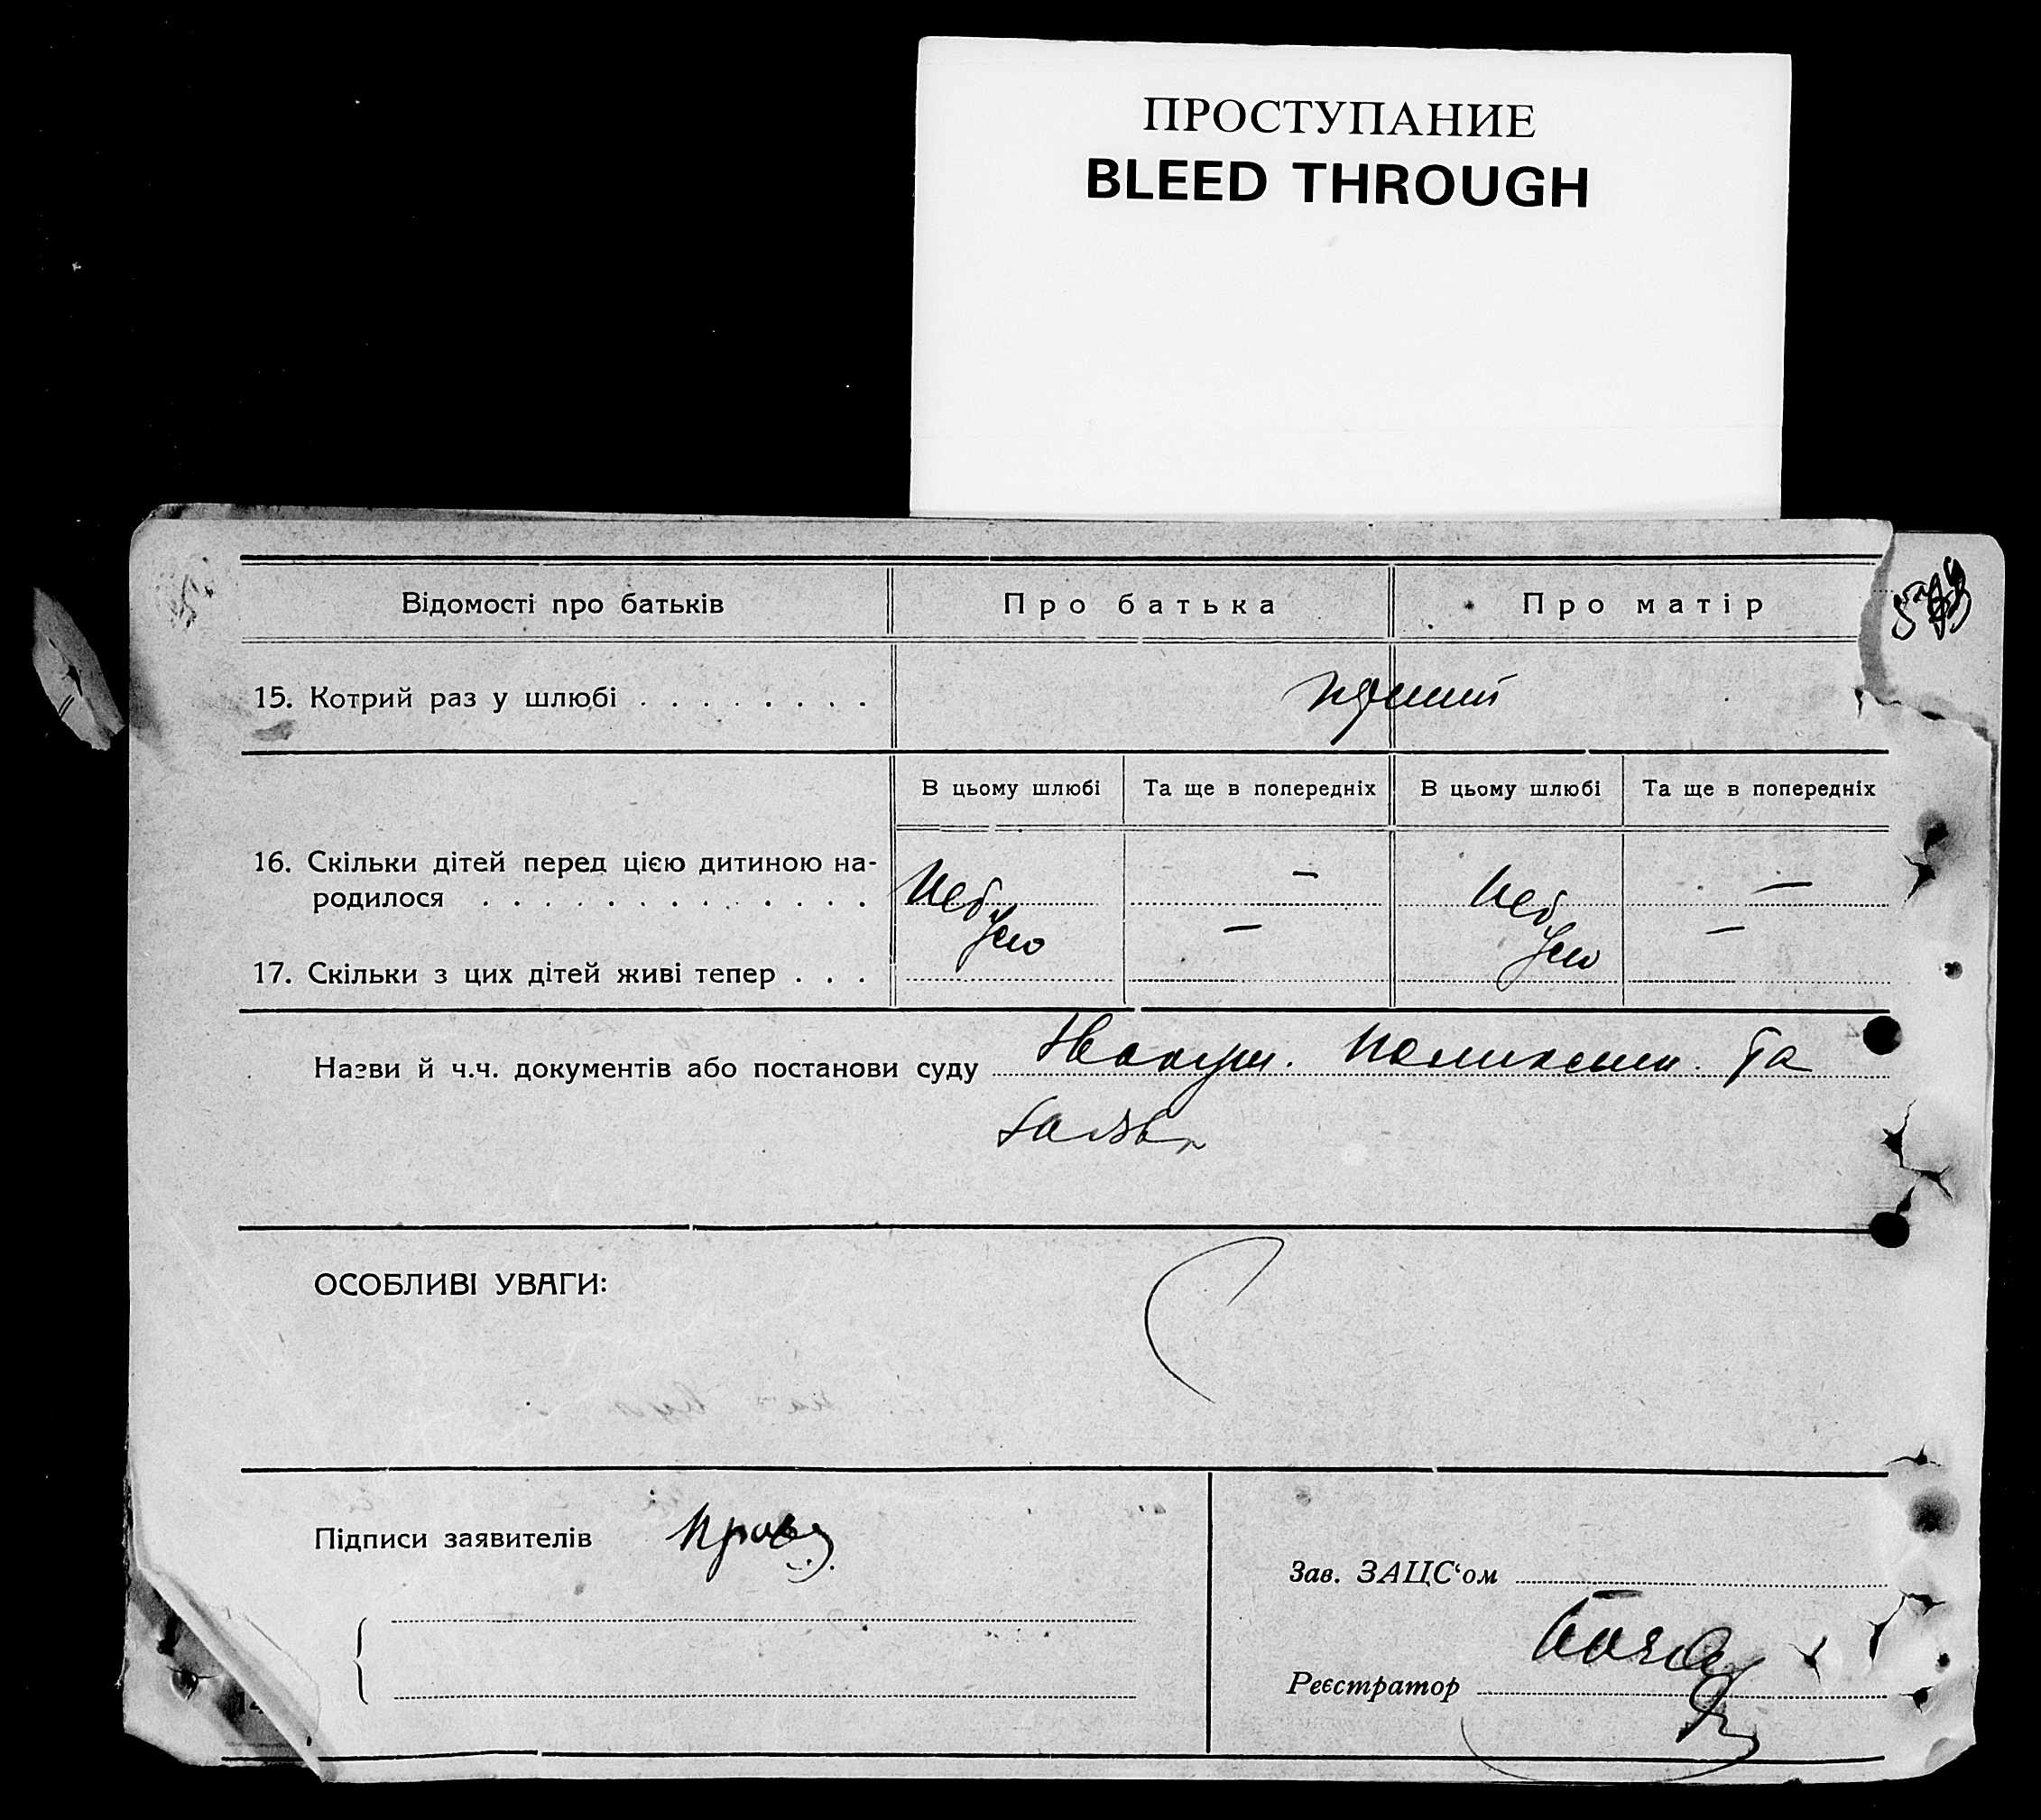 ПРОСТУПАНИЕ
BLEED THROUGH
Відомості про батьків
Про батька
Про матір
15. Котрий раз у шлюбі . . . . . . . .
В цьому шлюбі
Та ще в попередніх
В цьому шлюбі
Та ще в попередніх
16. Скільки дітей перед цією дитиною на-
родилося . . . . . . . . . . . . . .
Не б
— Не б —
уло — уло —
17. Скільки з цих дітей живі тепер . . .
Назви й ч.ч. документів або постанови суду та
ОСОБЛИВІ УВАГИ:
Підписи заявителів
Зав. ЗАЦС‘ом
Реєстратор